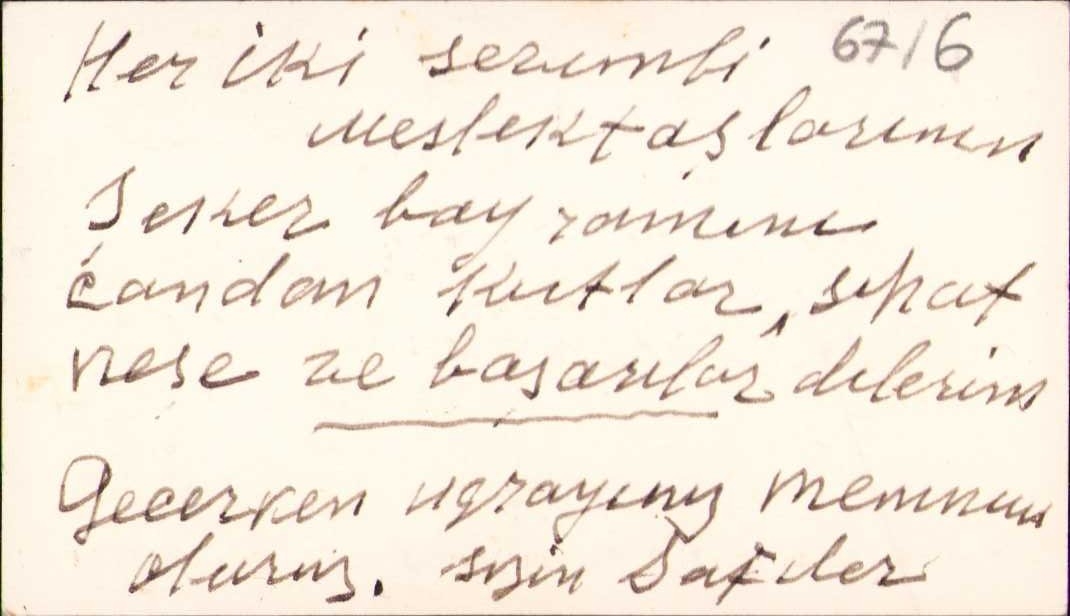 Her iki sevimli 67/6
meslektaşlarımın
Şeker bayramını
candan kutlar, sıhat
neşe ve başarılar dilerim
Geçerken uğrayınız memnun
oluruz. sizin